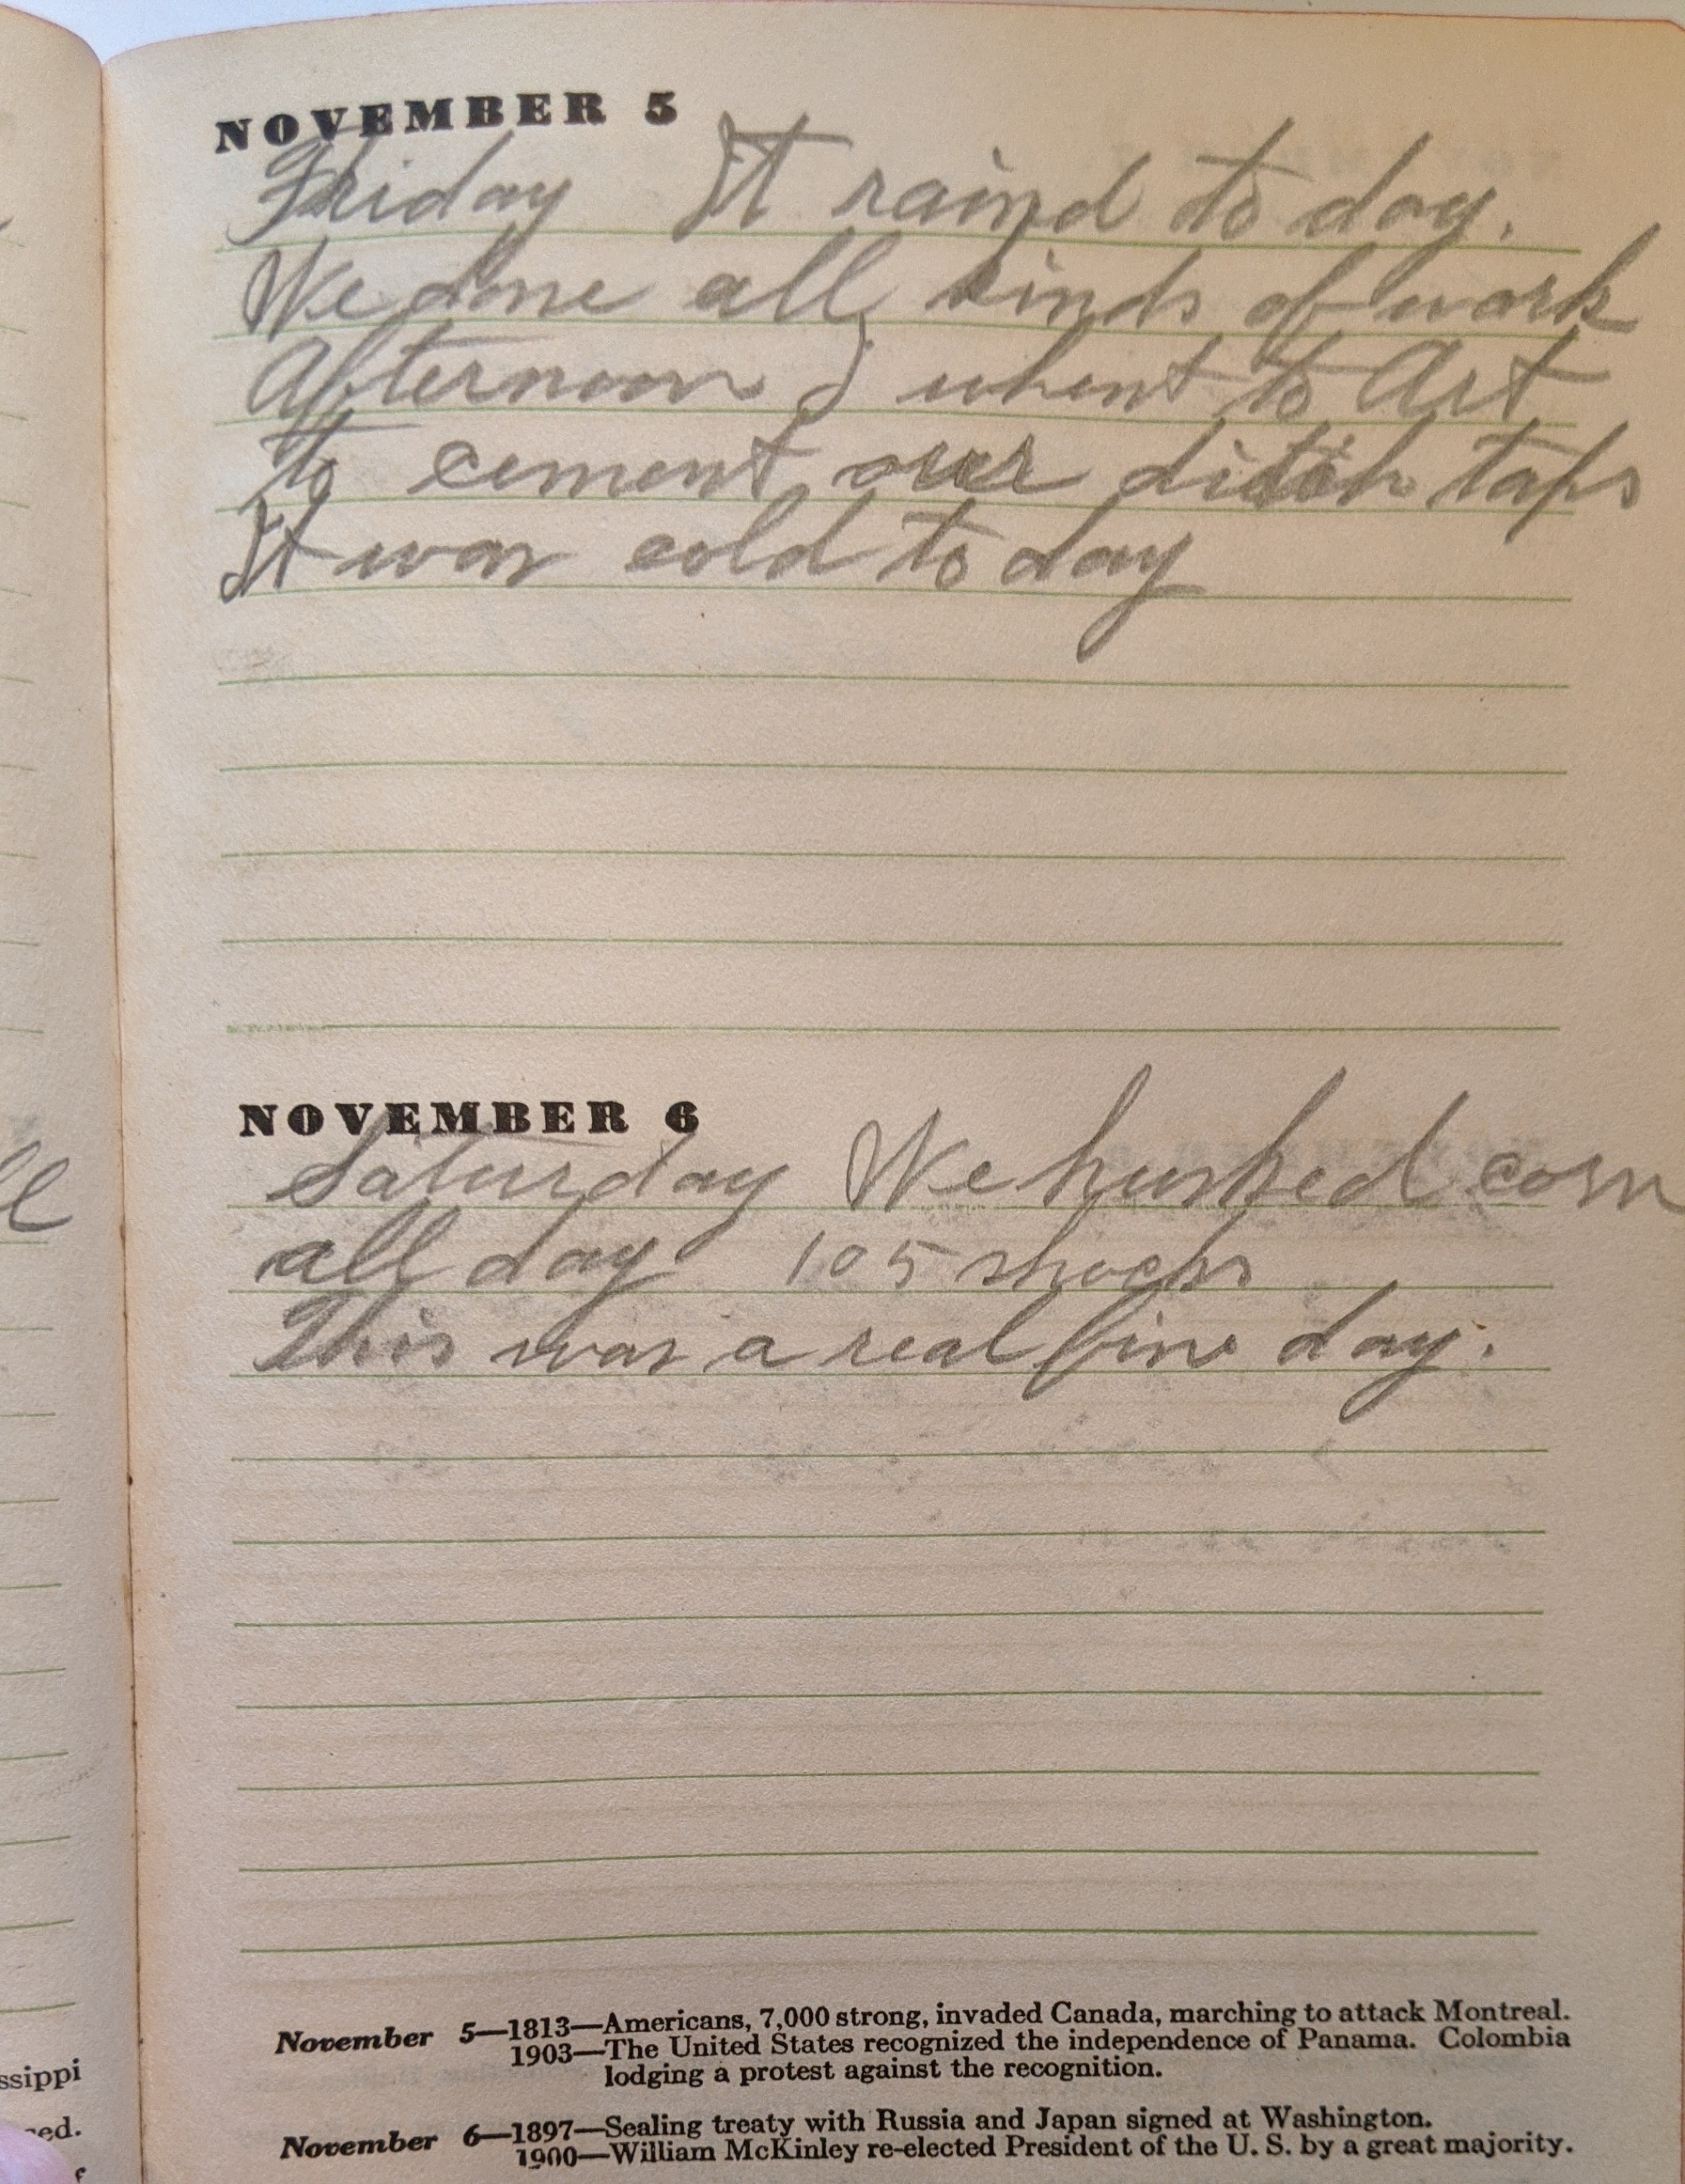 NOVEMBER 5
Friday It raind to day.
We done all kinds of work
Afternoon I whent to Art
to cement our ditch taps
It was cold to day
NOVEMBER 6
Saturday We husked corn
all day 105 shocks
This was a real fine day.
November 5—1813—Americans, 7,000 strong, invaded Canada, marching to attack Montreal.
1903—The United States recognized the independence of Panama. Colombia
lodging a protest against the recognition.
November 6—1897—Sealing treaty with Russia and Japan signed at Washington.
1900—William McKinley re-elected President of the U. S. by a great majority.
ll
ssippi